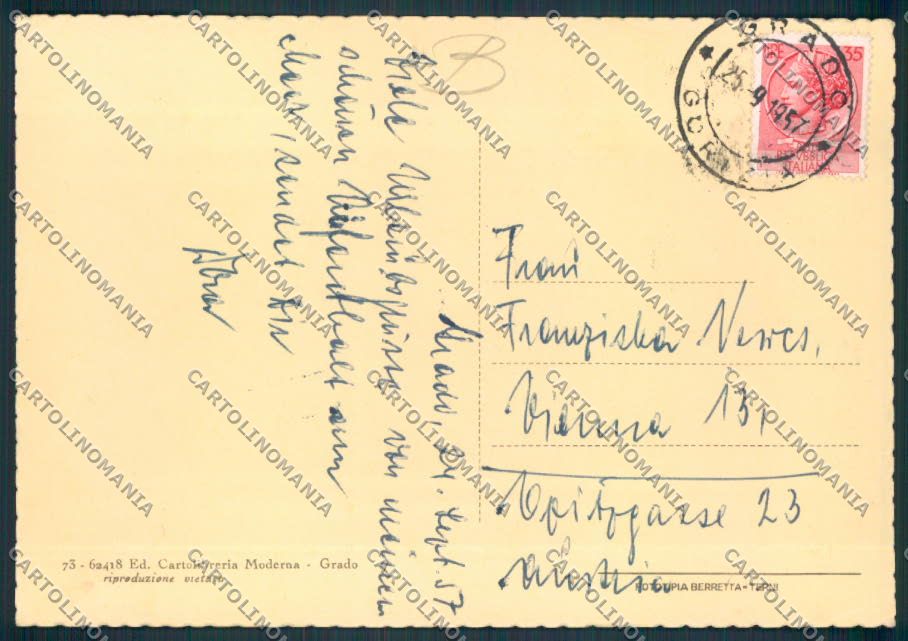 Grado, 24. Sept. 57
Viele Urlaubsgrüsse von meinem
schönen Aufenthalt am
Meer sendet Dir
B
GRADO
25-9 1957
GORIZIA
35
REPVBBLICA
ITALIANA
Frau
Franziska
Vienna 13.
Opitzgasse 23
Austria
73 - 62418 Ed. Cartolibreria Moderna - Grado
riproduzione vietata
FOTOTIPIA BERRETTA - TERNI
CARTOLINOMANIA